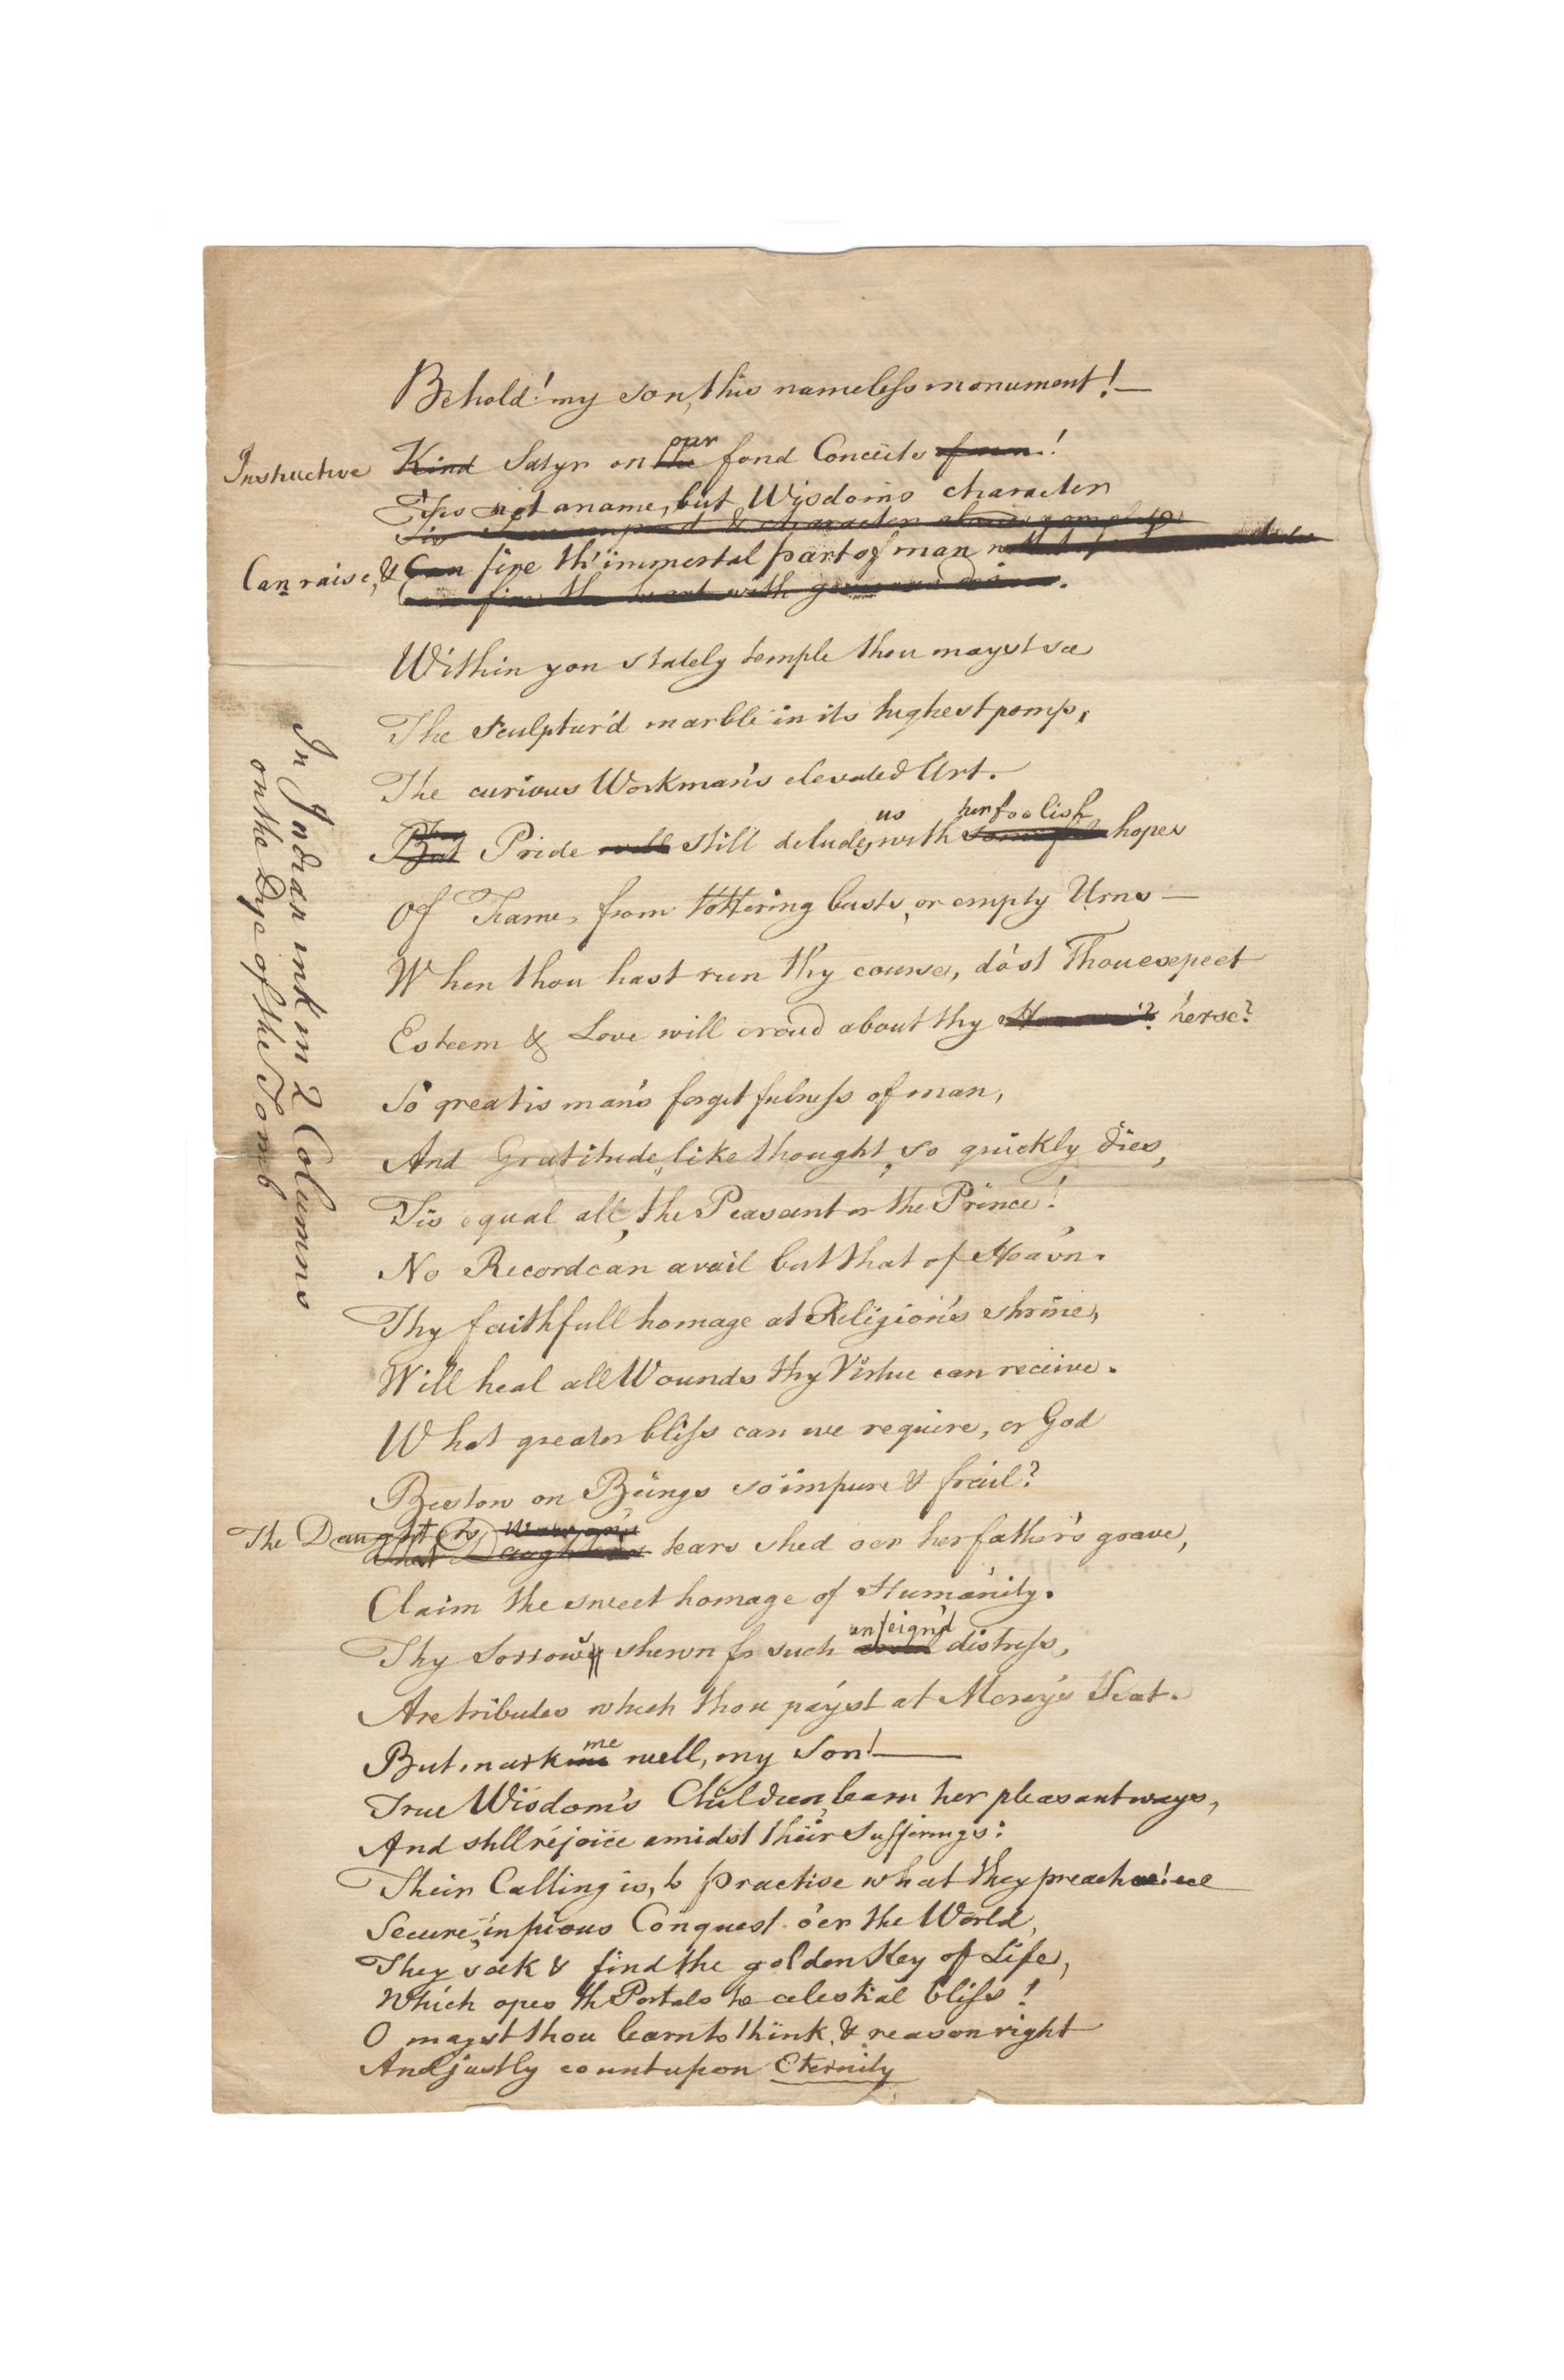 Behold! my son, this nameless monument! —
Instructive Kind Satyr on the our fond Conceits !
Tis not a name, but Wisdom's character
Tis & character alone
Can raise, & Can fire th' immortal part of man
Can fire the heart with .
Within yon stately temple thou mayst see
The sculptur'd marble in its highest pomp,
The curious Workman's elevated Art.
But Pride will still deludes us with her foolish hopes
Of Fame, from tottering busts, or empty Urns —
When thou hast run thy course, do'st Thou expect
Esteem & Love will croud about thy herse?
So great is man's forgetfulness of man,
And Gratitude, like thought, so quickly dies,
Tis equal all, the Peasant or the Prince!
No Record can avail but that of Heav'n.
Thy faithfull homage at Religion's shrine,
Will heal all Wounds thy Virtue can receive.
What greater bliss can we require, or God
Bestow on Beings so impure & frail?
The Daughter's tears shed oer her father's grave,
Claim the sweet homage of Humanity.
Thy Sorrows shewn for such unfeign'd distress,
Are tributes which thou pay'st at Mercy's Seat.
But mark me well, my Son! —
True Wisdom's Children, learn her pleasant ways,
And still rejoice amidst their Sufferings:
Their Calling is, to practise what they preach
Secure, in pious Conquest o'er the World,
They seek & find the golden Key of Life,
Which opes th Portals to celestial bliss!
O mayst thou learn to think & reason right
And justly count upon Eternity
In Indian ink in 2 Columns
on the Dye of the Tomb